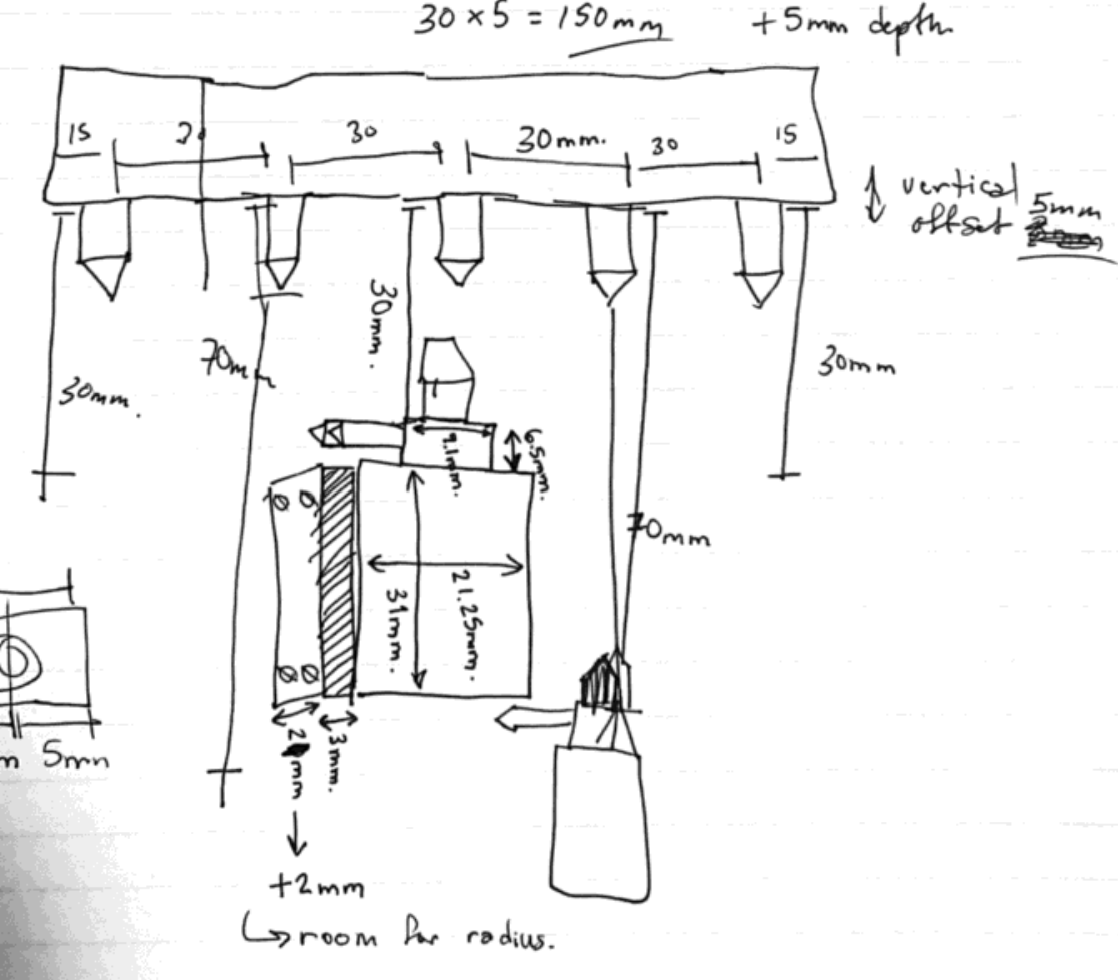 30 × 5 = 150mm
+5mm depth
15
30
30mm.
30
15
vertical
offset 5mm
30mm.
70mm
30mm.
30mm
9.1mm.
6.5mm.
70mm
31mm.
21.25mm.
mm
3mm.
m 5mm
+2mm
↳ room for radius.